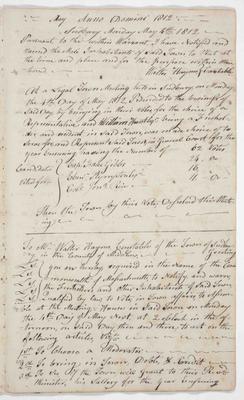 May Anno Domini 1812
Sudbury Monday May 4th 1812
Pursuant to the within Warrant, I have Notified and
warned the Male Inhabitants of said Town to Meet at
the time and place and for the purpose within Men-
tioned Walter Haynes Constable
At a Legal Town Meeting held in Sudbury on Monday
the 4th Day of May 1812. Proceeded to the business of
said Day by bringing in their Votes for the choice of a
Representative, and William Hunt Esqr being a Freehol-
der and resident in said Town, was chosen to
serve for and Represent said Town in General Court for the
year Ensuing having the number of 62 Votes
Candidates Capt Jonas Gibbs 24
Voted for 16
4
Then the Town by their Votes Dissolved this Meet-
ing
To Mr. Walter Haynes Constable of the Town of Sudbury
in the County of Middlesex Greeting
you are hereby required in the Name of the Com-
monwealth of Massachusetts to Notify and warn
the Freeholders and other Inhabitants of said Town
qualified by law to Vote in Town affairs to Assem-
ble at the Meeting House in said Town on Monday
the 4th Day of May Next at 2 oClock in the af-
ternoon, in said Day then and there to act on the
following articles, viz
1st To Choose a Moderator
2d To bring in Town Debts & Credit
3d To See if the Town will grant to their Revd
Minister, his Sallary for the Year Ensuing